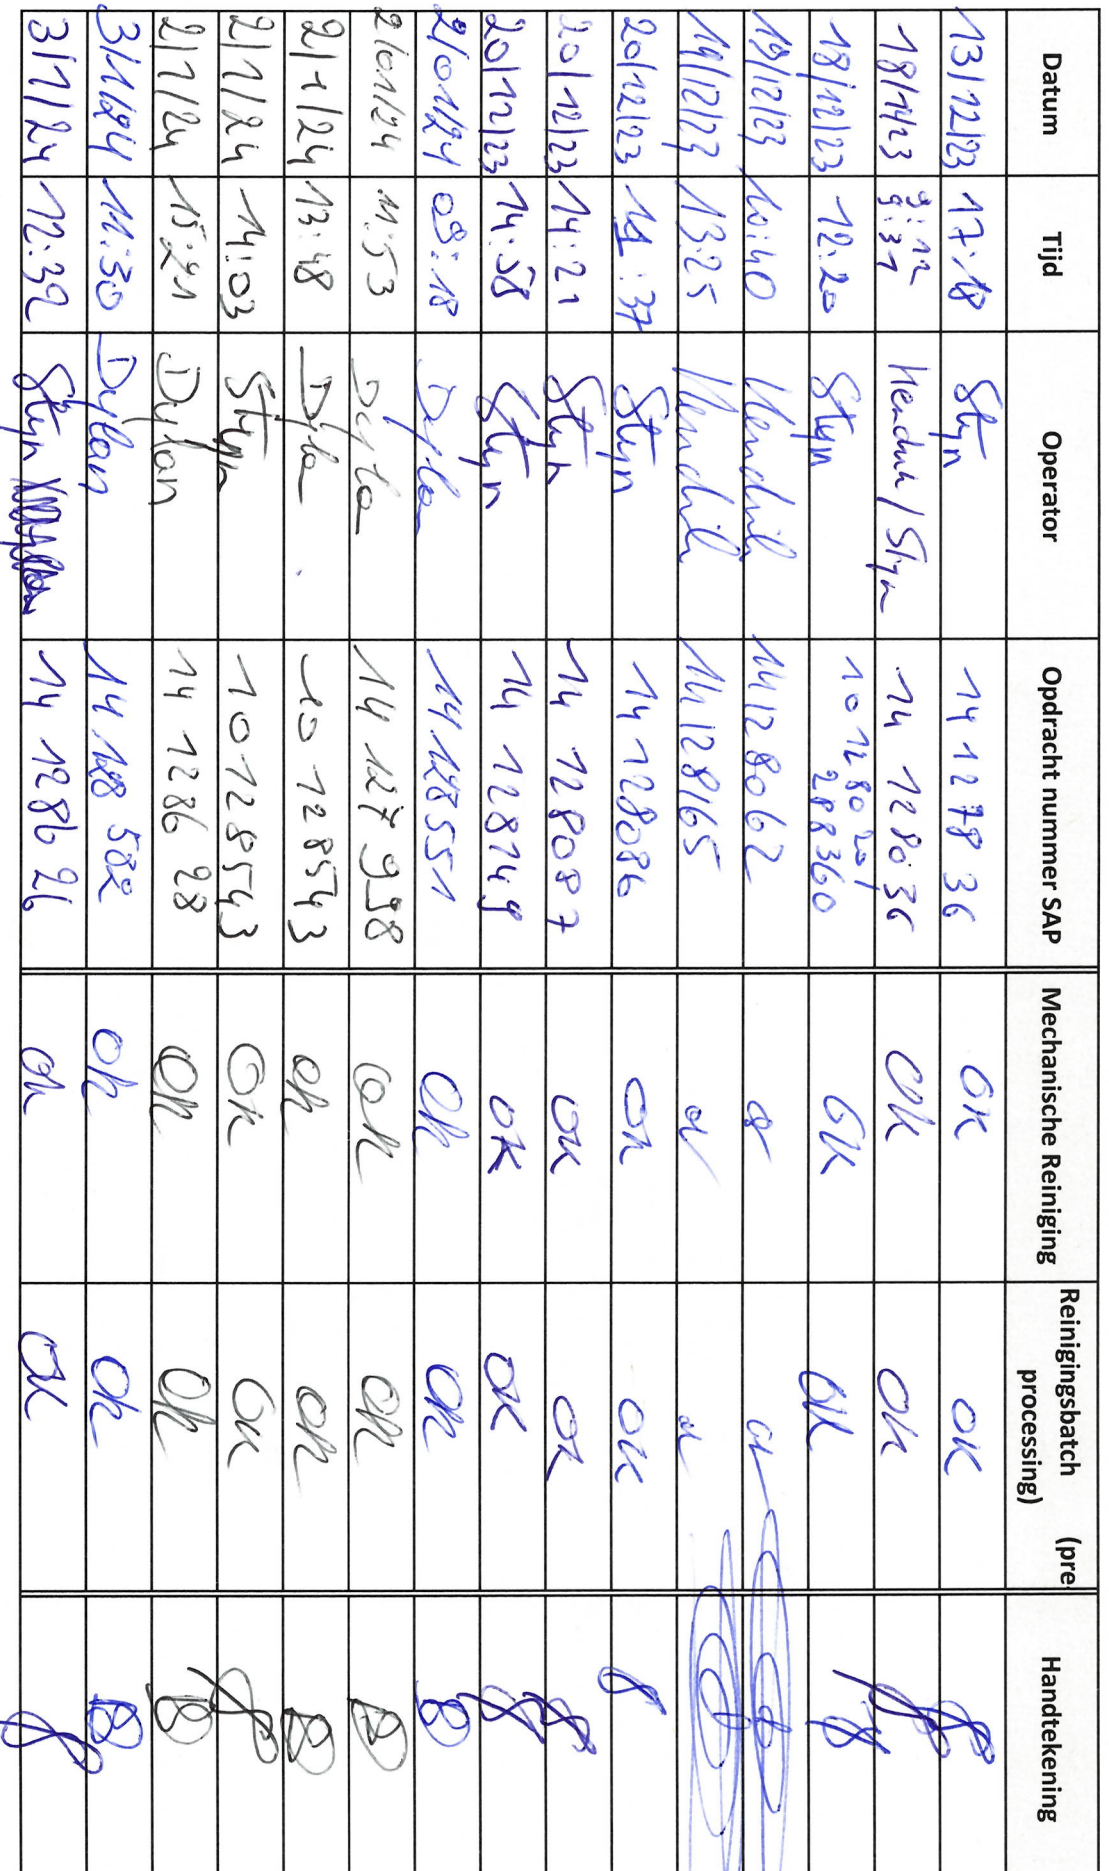 Datum Tijd Operator Opdracht nummer SAP Mechanische Reiniging Reinigingsbatch (pre processing) Handtekening
13/12/23 17:18 Styn 14 1278 36 OK OK
18/12/23 9:12 9:31 Hendrik / Styn 14 128036 OK OK
18/12/23 12:20 Styn 10 128020/ 288360 OK OK
19/12/23 10:40 Hendrik 14128062
19/12/23 13:25 Hendrik 14128165
20/12/23 11:37 Styn 14 128086 OK OK
20/12/23 14:21 Styn 14 128087 OK OK
20/12/23 14:58 Styn 14 128149 OK OK
2/01/24 09:18 Dylan 14 128551 Ok Ok
2/01/24 11:53 Dylan 14 127998 Ok Ok
2/1/24 13:48 Dylan 10 128543 ok ok
2/1/24 14:03 Styn 10 128543 OK OK
2/1/24 15:21 Dylan 14 1286 28 Ok Ok
3/1/24 11:30 Dylan 14 128 582 Ok Ok
3/1/24 12:32 Styn 14 1286 26 ok OK